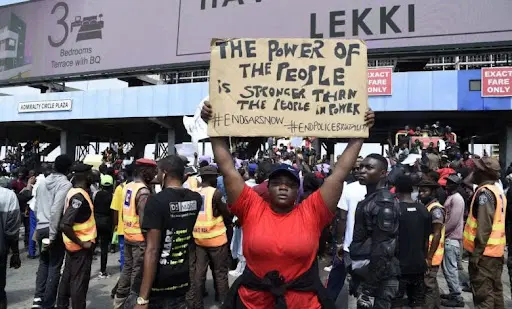 3
Bedrooms
Terrace with BQ
LEKKI
ADMIRALTY CIRCLE PLAZA
EXACT
FARE
ONLY
EXACT FARE
ONLY
THE POWER OF
THE PEOPLE
IS STRONGER THAN
THE PEOPLE IN POWER
#ENDSARSNOW #ENDPOLICEBRUTALITY